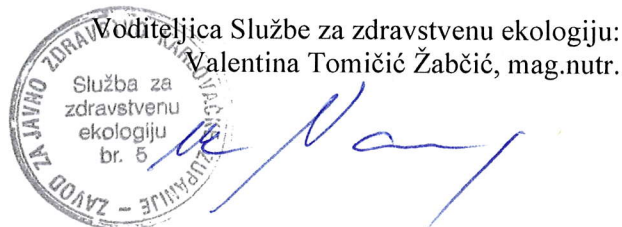 Voditeljica Službe za zdravstvenu ekologiju:
Valentina Tomičić Žabčić, mag.nutr.
ZAVOD ZA JAVNO ZDRAVSTVO KARLOVAČKE ŽUPANIJE –
Služba za
zdravstvenu
ekologiju
br. 5